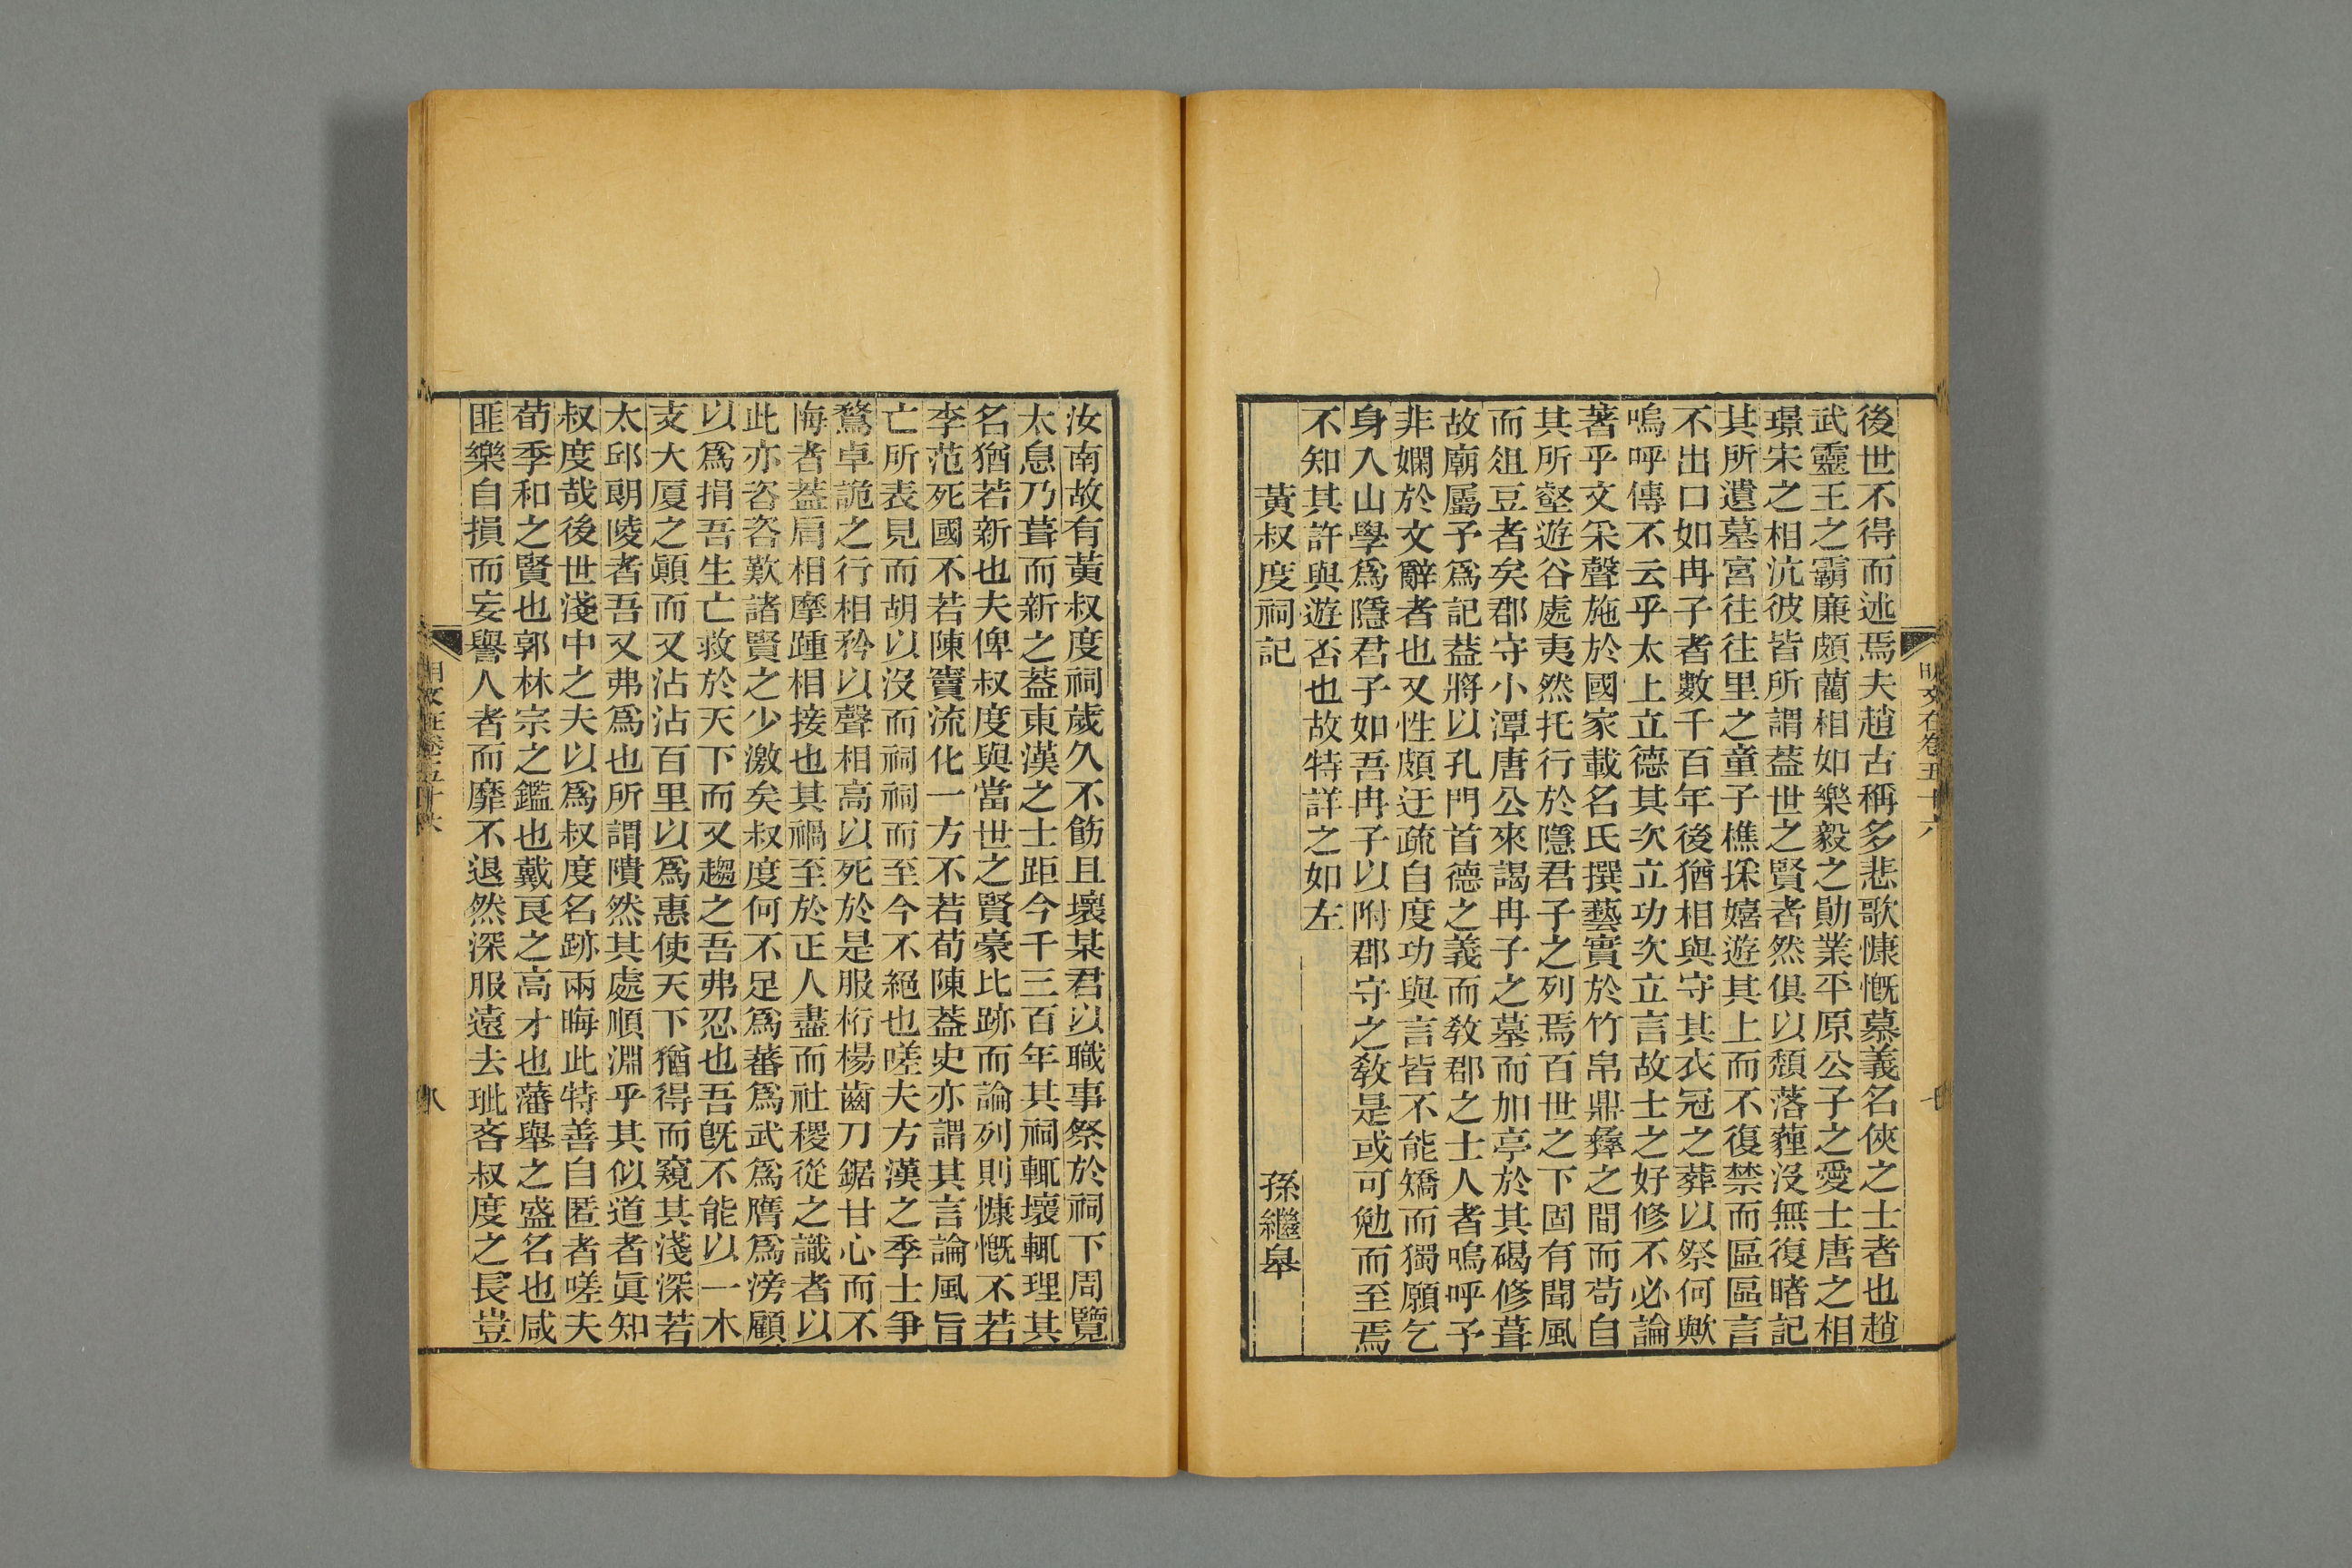 明文在卷五十六
七
後世不得而述焉夫趙古稱多悲歌慷慨慕義名俠之士者也趙
武靈王之霸廉頗藺相如樂毅之勛業平原公子之愛士唐之相
璟宋之相沆彼皆所謂蓋世之賢者然俱以頹落薶沒無復睹記
其所遺墓宮往往里之童子樵採嬉遊其上而不復禁而區區言
不出口如冉子者數千百年後猶相與守其衣冠之葬以祭何歟
嗚呼傳不云乎太上立德其次立功次立言故士之好修不必論
著乎文采聲施於國家載名氏撰藝實於竹帛鼎彝之間而苟自
其所壑遊谷處夷然托行於隱君子之列焉百世之下固有聞風
而俎豆者矣郡守小潭唐公來謁冉子之墓而加亭於其碣修葺
故廟屬予爲記葢將以孔門首德之義而敎郡之士人者嗚呼予
非嫻於文辭者也又性頗迂疏自度功與言皆不能矯而獨願乞
身入山學爲隱君子如吾冉子以附郡守之敎是或可勉而至焉
不知其許與遊否也故特詳之如左
黃叔度祠記 孫繼皋
汝南故有黃叔度祠歲久不飭且壞某君以職事祭於祠下周覽
太息乃葺而新之葢東漢之士距今千三百年其祠輒壞輒理其
名猶若新也夫俾叔度與當世之賢豪比跡而論列則慷慨不若
李范死國不若陳竇流化一方不若荀陳葢史亦謂其言論風旨
亡所表見而胡以沒而祠祠而至今不絕也嗟夫方漢之季士爭
騖卓詭之行相矜以聲相高以死於是服桁楊齒刀鋸甘心而不
悔者葢肩相摩踵相接也其禍至於正人盡而社稷從之識者以
此亦咨咨歎諸賢之少激矣叔度何不足爲蕃爲武爲膺爲滂顧
以爲捐吾生亡救於天下而又趨之吾弗忍也吾旣不能以一木
支大厦之顚而又沾沾百里以爲惠使天下猶得而窺其淺深若
太邱朗陵者吾又弗爲也所謂隤然其處順淵乎其似道者眞知
叔度哉後世淺中之夫以爲叔度名跡兩晦此特善自匿者嗟夫
荀季和之賢也郭林宗之鑑也戴良之高才也藩舉之盛名也咸
匪樂自損而妄譽人者而靡不退然深服遠去玼吝叔度之長豈
明文在卷五十六
八